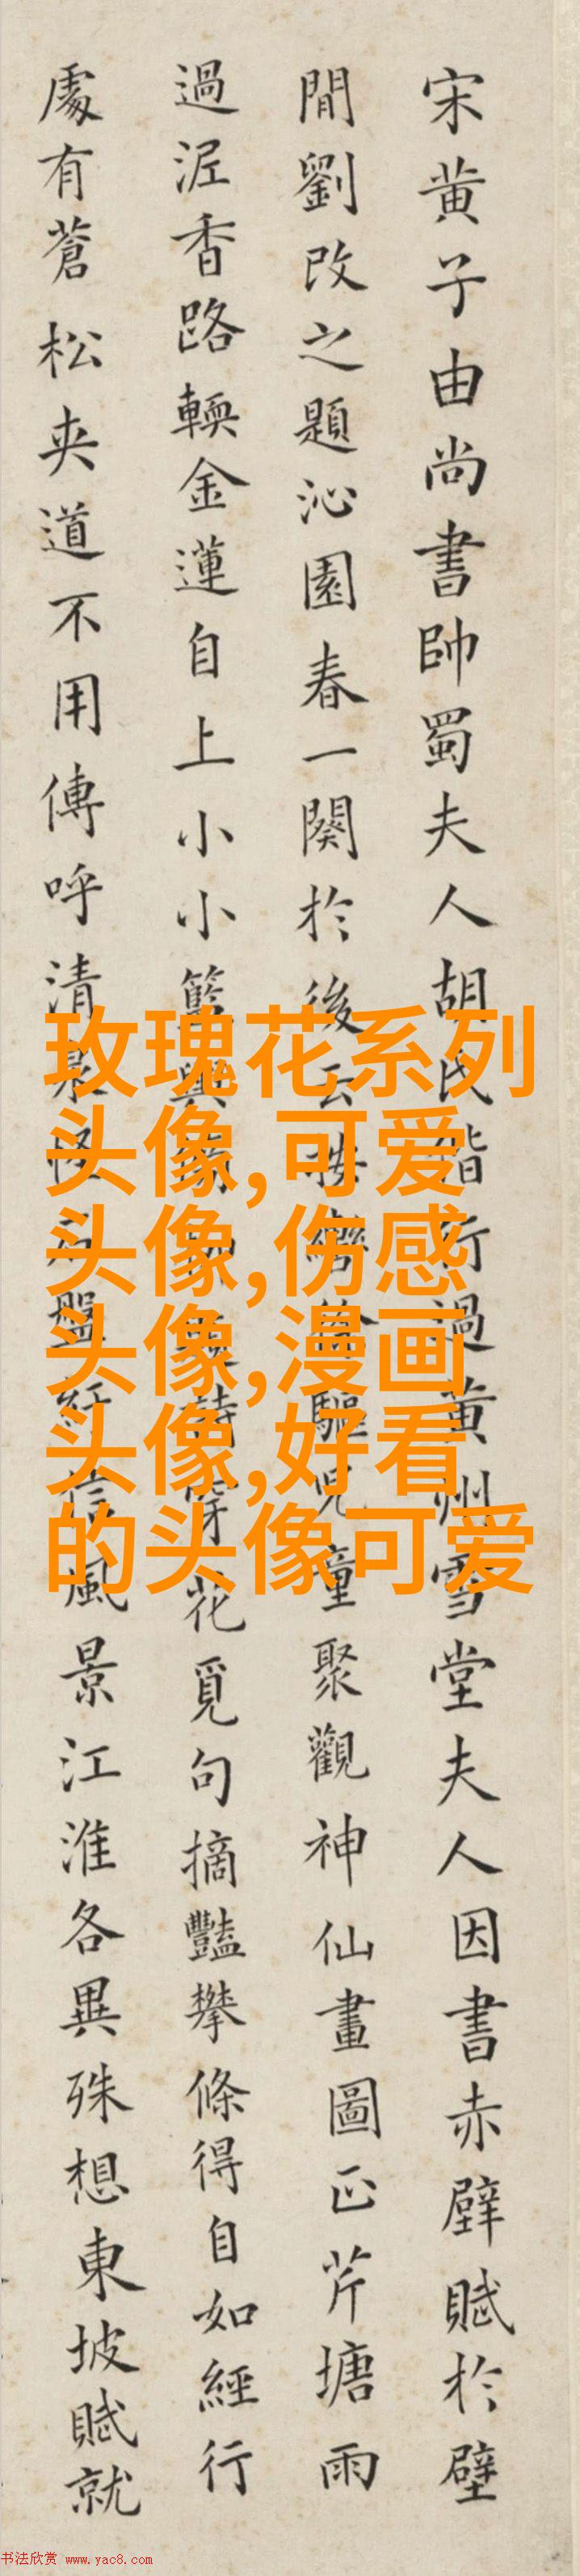 宋黄子由尚書帥蜀夫人胡氏偕行過黄州雪堂夫人因書赤壁賦於壁
間劉改之題沁園春一闋於後云按轡徐驅兒童聚觀神仙畫圖正芹塘雨
過泥香路輭金蓮自上小小籃輿穿花覓句摘豔攀條得自如經行
處有蒼松夾道不用傳呼清泉怪石盤紆信風景江淮各異殊想東坡賦就
玫瑰花系列
头像,可爱
头像,伤感
头像,漫画
头像,好看
的头像可爱
书法欣赏 www.yac8.com